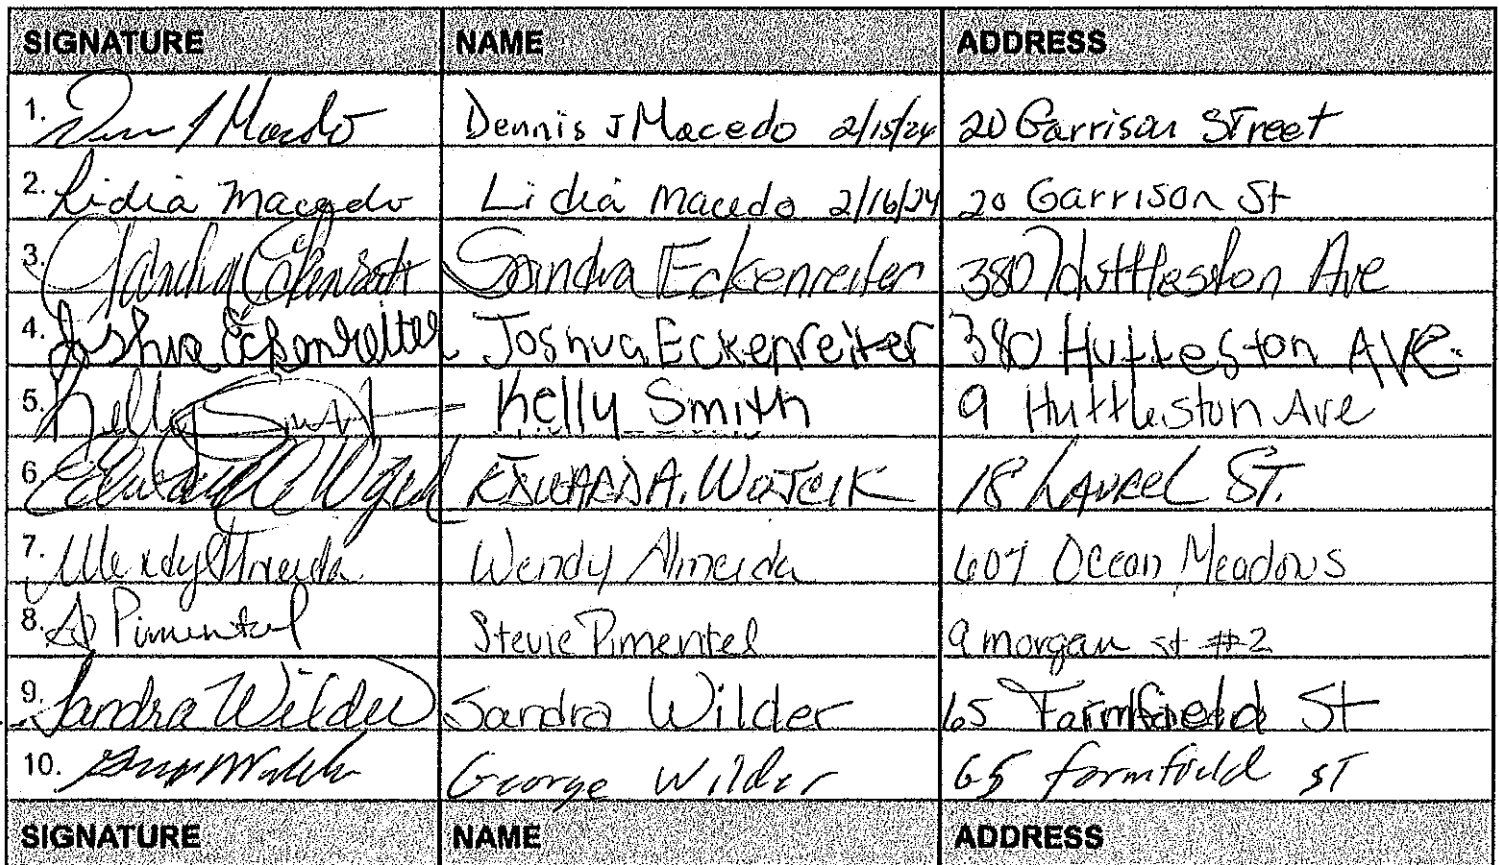 SIGNATURE NAME ADDRESS
1. Dennis J Macedo 2/15/24 20 Garrison Street
2. Lidia Macedo Lidia Macedo 2/16/24 20 Garrison St
3. Sandra Eckenreiter 380 Huttleston Ave
4. Joshua Eckenreiter Joshua Eckenreiter 380 Huttleston AVE.
5. Kelly Smith Kelly Smith 9 Huttleston Ave
6. Edward A Wojcik EDWARD A. WOJCIK 18 LAUREL ST.
7. Wendy Almeida Wendy Almeida 607 Ocean Meadows
8. S Pimentel Stevie Pimentel 9 morgan st #2
9. Sandra Wilder Sandra Wilder 65 Farmfield St
10. George Wilder 65 farmfield ST
SIGNATURE NAME ADDRESS